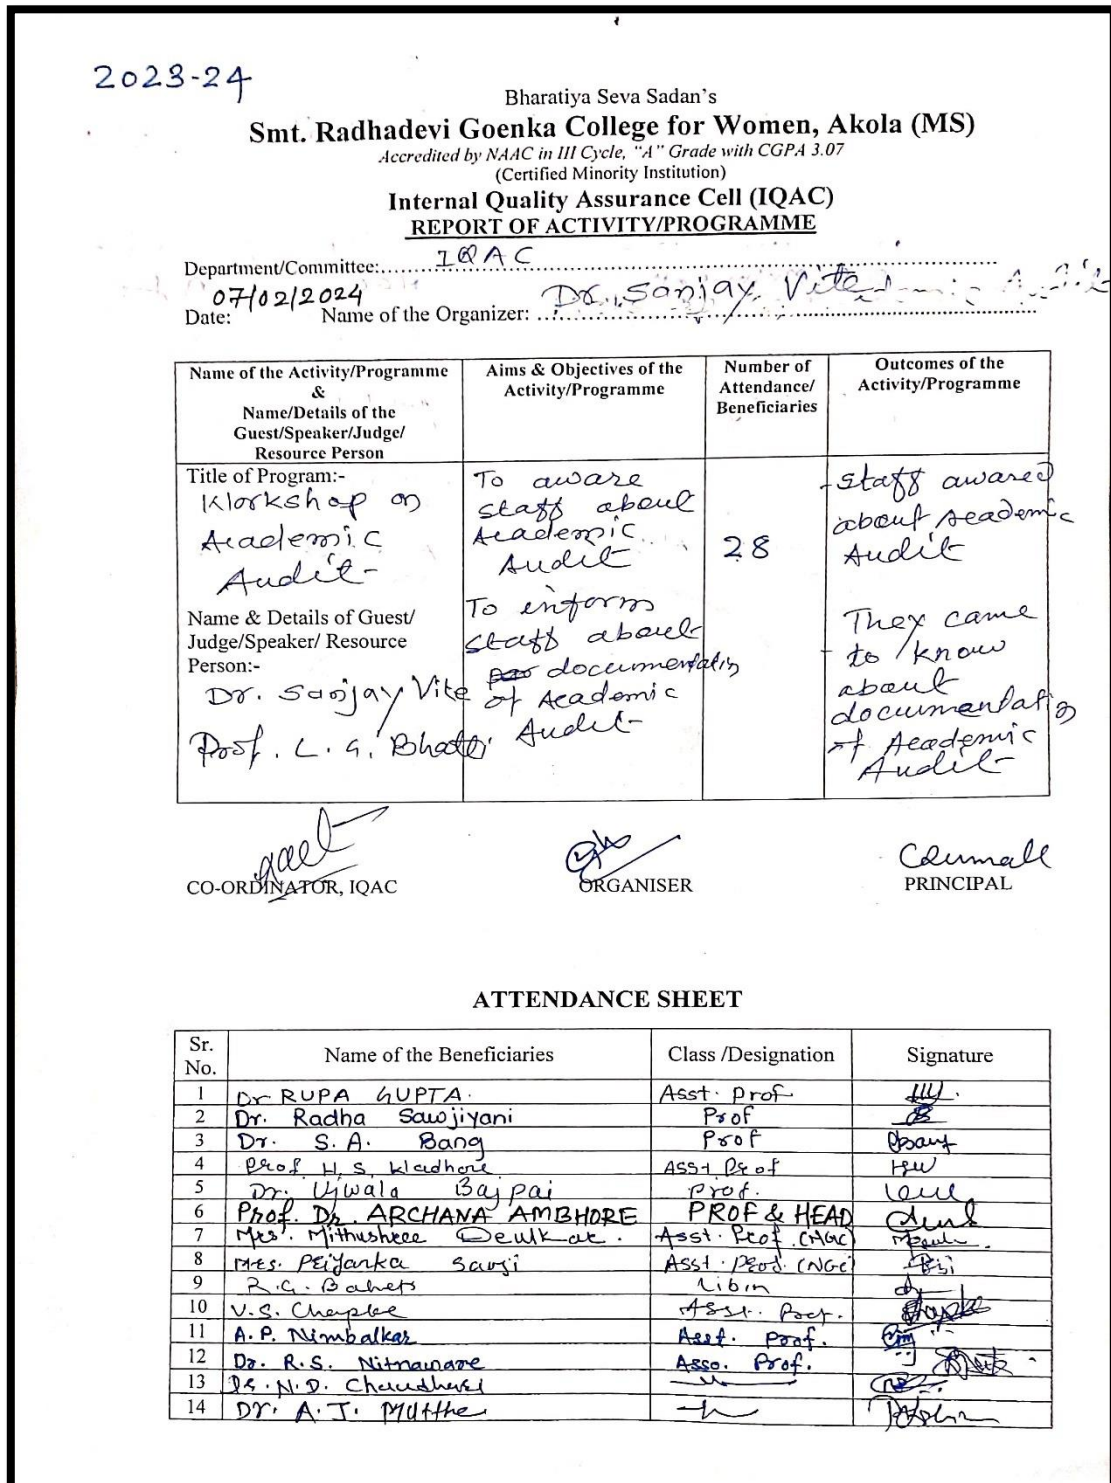 2023-24
Bharatiya Seva Sadan's
Smt. Radhadevi Goenka College for Women, Akola (MS)
Accredited by NAAC in III Cycle, "A" Grade with CGPA 3.07
(Certified Minority Institution)
Internal Quality Assurance Cell (IQAC)
REPORT OF ACTIVITY/PROGRAMME
Department/Committee: IQAC
Date: 07/02/2024 Name of the Organizer: Dr. Sanjay Vite
Name of the Activity/Programme
&
Name/Details of the
Guest/Speaker/Judge/
Resource Person
Aims & Objectives of the
Activity/Programme
Number of
Attendance/
Beneficiaries
Outcomes of the
Activity/Programme
Title of Program:-
Workshop on
Academic
Audit
Name & Details of Guest/
Judge/Speaker/ Resource
Person:-
Dr. Sanjay Vite
Prof. L. G.
To aware
staff about
Academic
Audit
To inform
staff about
documentation
of Academic
Audit
28
- staff awared
about Academic
Audit
- They came
to know
about
documentation
of Academic
Audit
CO-ORDINATOR, IQAC
ORGANISER
PRINCIPAL
ATTENDANCE SHEET
Sr. No. Name of the Beneficiaries Class /Designation Signature
1 Dr RUPA GUPTA. Asst. Prof
2 Dr. Radha Sawjiyani Prof
3 Dr. S. A. Bang Prof
4 Prof H. S. Asst Prof
5 Dr. Ujwala Bajpai Prof.
6 Prof. Dr. ARCHANA AMBHORE PROF & HEAD
7 Mrs. Mithushree Deulkar. Asst. Prof.
8 Mrs. Priyanka Asst. Prof.
9 R.G.
10 V.S. Asst. Prof.
11 A.P. Nimbalkar Asst. Prof.
12 Dr. R.S. Asso. Prof.
13 Dr. N.D.
14 Dr. A.J.